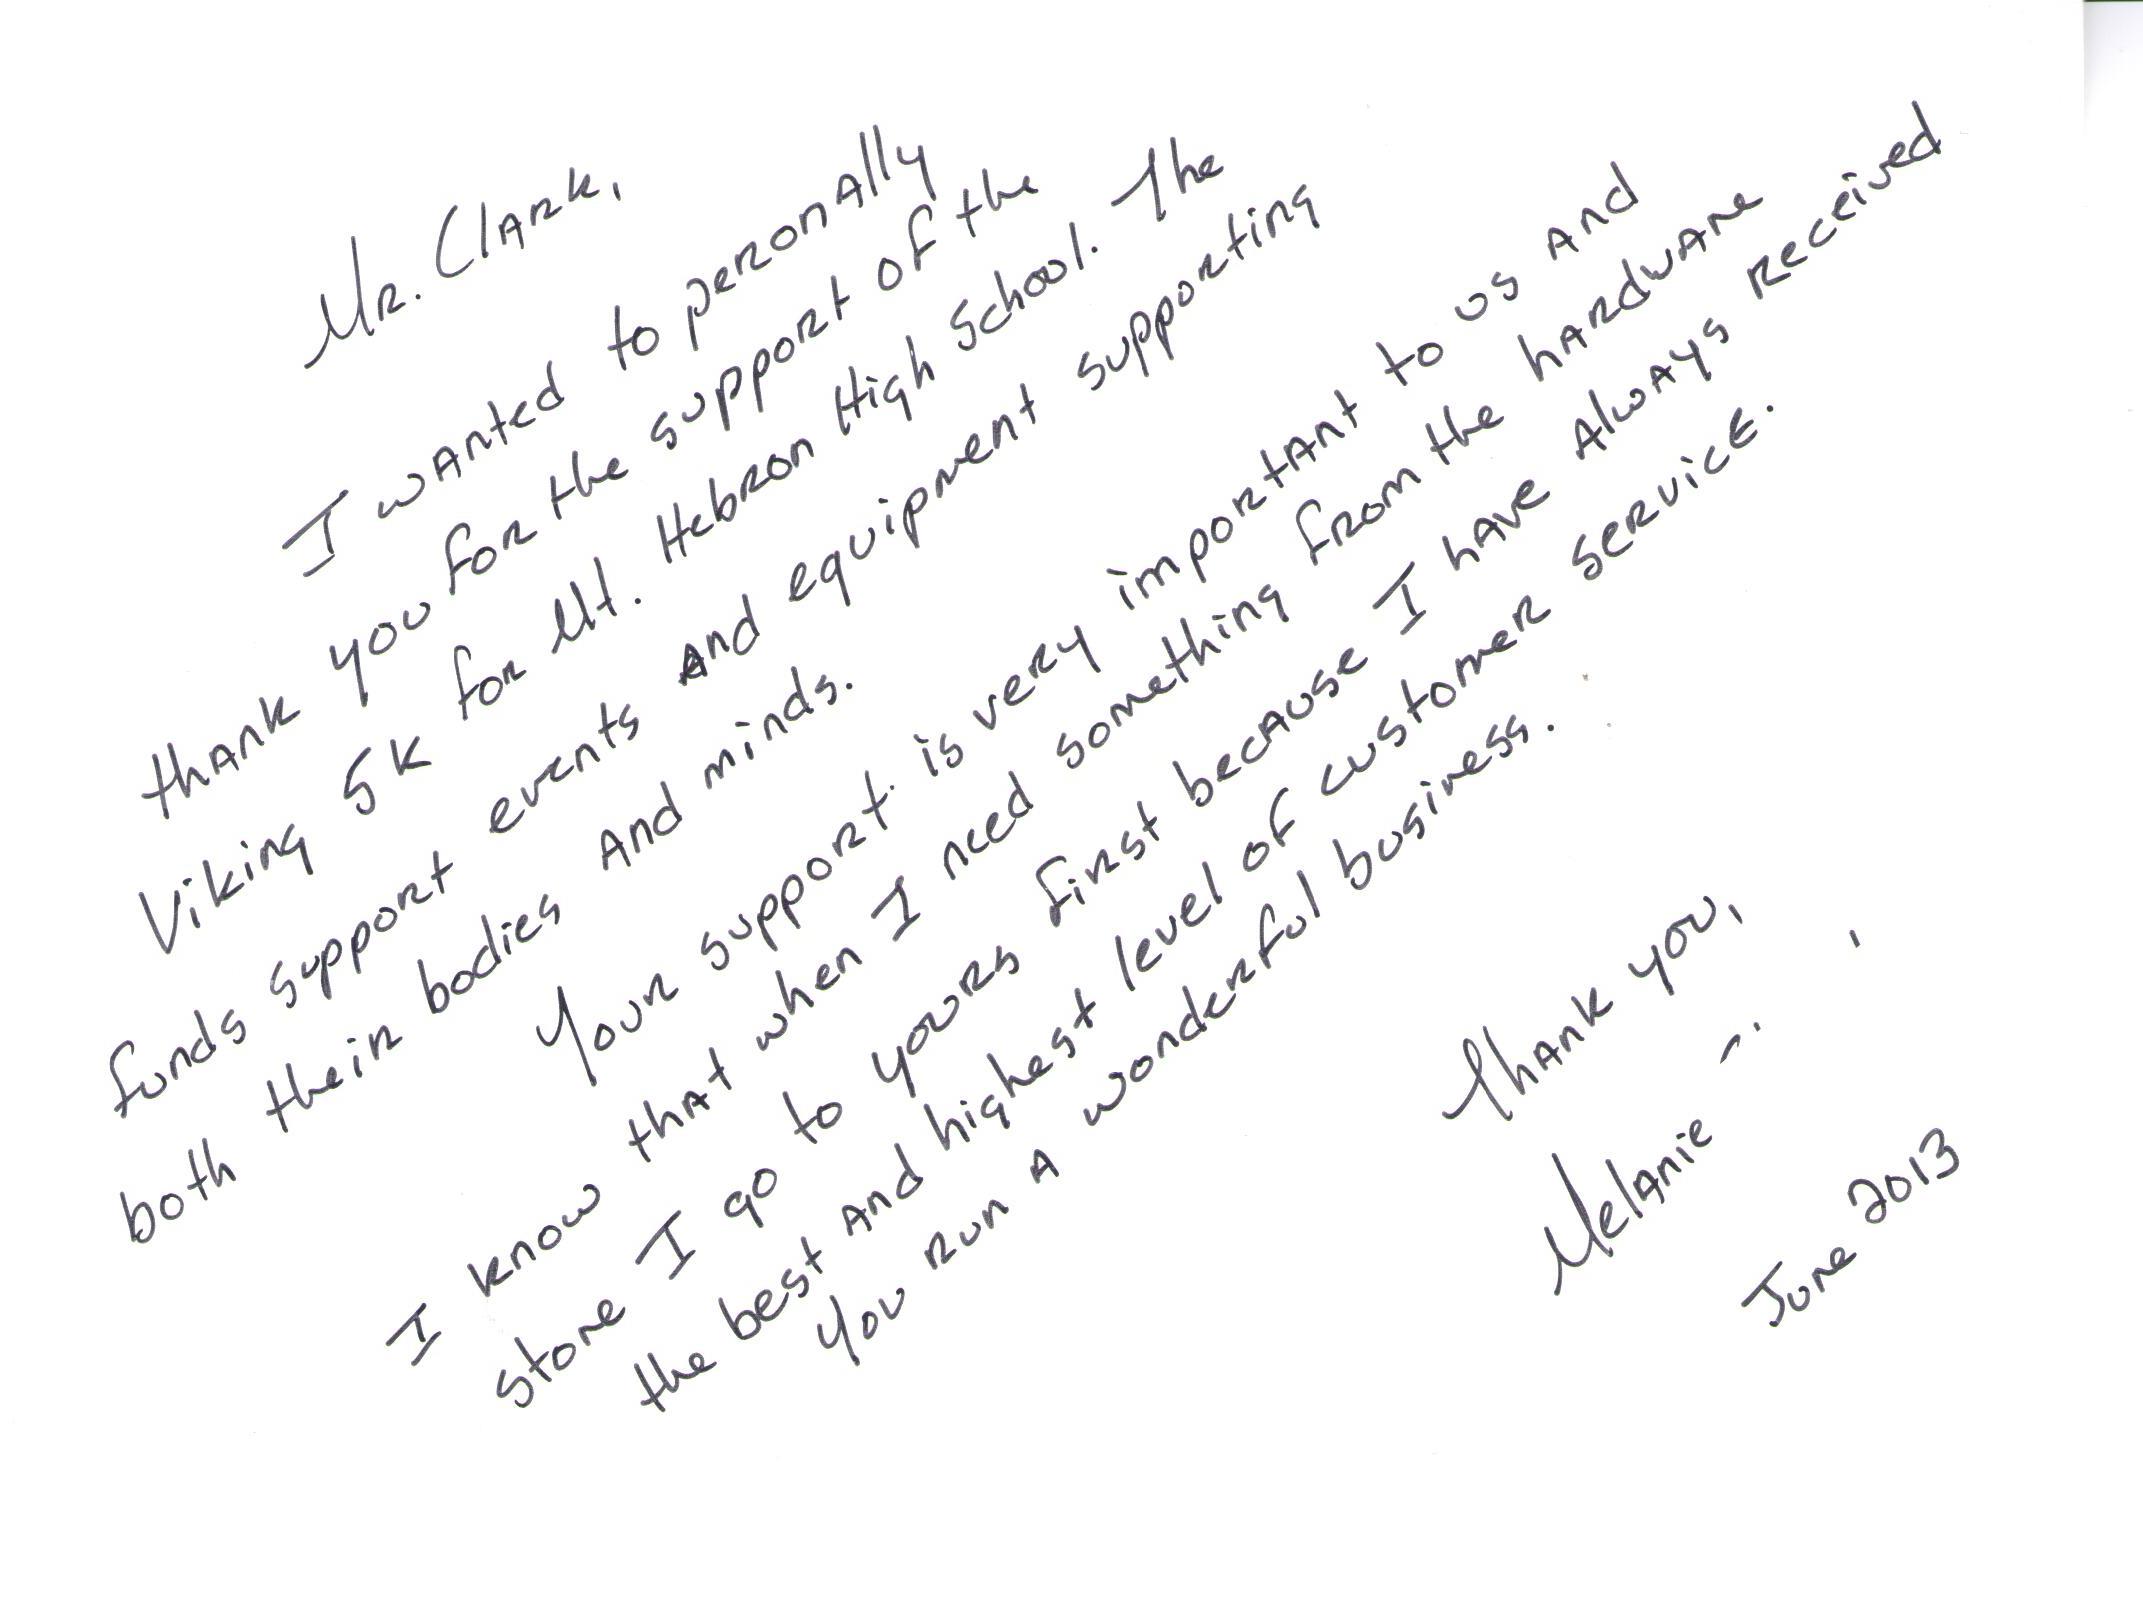 Mr. Clark,
I wanted to peronally
thank you for the support of the
Viking 5K for Mt. Hebron High School. The
funds support events and equipment supporting
both their bodies and minds.
Your support is very important to us and
I know that when I need something from the hardware
store I go to yours first because I have always received
the best and highest level of customer service.
You run a wonderful business.
Thank you,
Melanie
June 2013